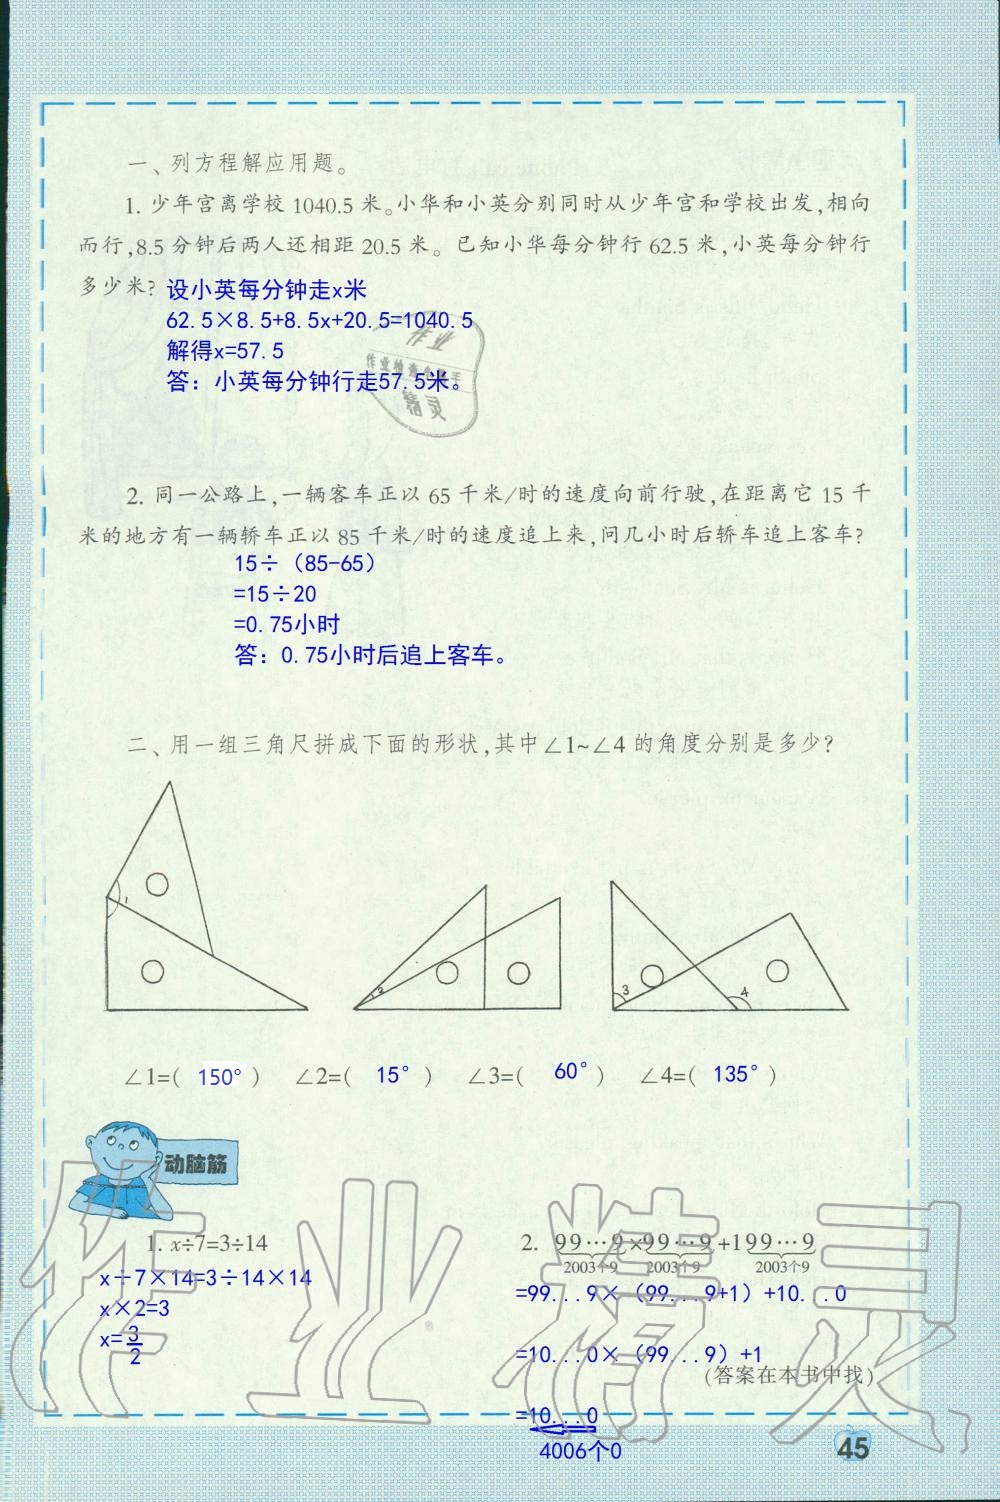 一、列方程解应用题。
1. 少年宫离学校 1040.5 米。小华和小英分别同时从少年宫和学校出发,相向
而行,8.5 分钟后两人还相距 20.5 米。已知小华每分钟行 62.5 米,小英每分钟行
多少米?
设小英每分钟走x米
62.5×8.5+8.5x+20.5=1040.5
解得x=57.5
答：小英每分钟行走57.5米。
作业
作业检查小助手
精灵
2. 同一公路上,一辆客车正以 65 千米/时的速度向前行驶,在距离它 15 千
米的地方有一辆轿车正以 85 千米/时的速度追上来,问几小时后轿车追上客车?
15÷（85-65）
=15÷20
=0.75小时
答：0.75小时后追上客车。
二、用一组三角尺拼成下面的形状,其中∠1~∠4 的角度分别是多少?
1
2
3
4
∠1=( 150° ) ∠2=( 15° ) ∠3=( 60° ) ∠4=( 135° )
动脑筋
1. x÷7=3÷14
x÷7×14=3÷14×14
x×2=3
x=3/2
2. 99…9×99…9+199…9
2003个9 2003个9 2003个9
=99...9×（99...9+1）+10...0
=10...0×（99...9）+1
(答案在本书中找)
=10...0
4006个0
作业精灵
45